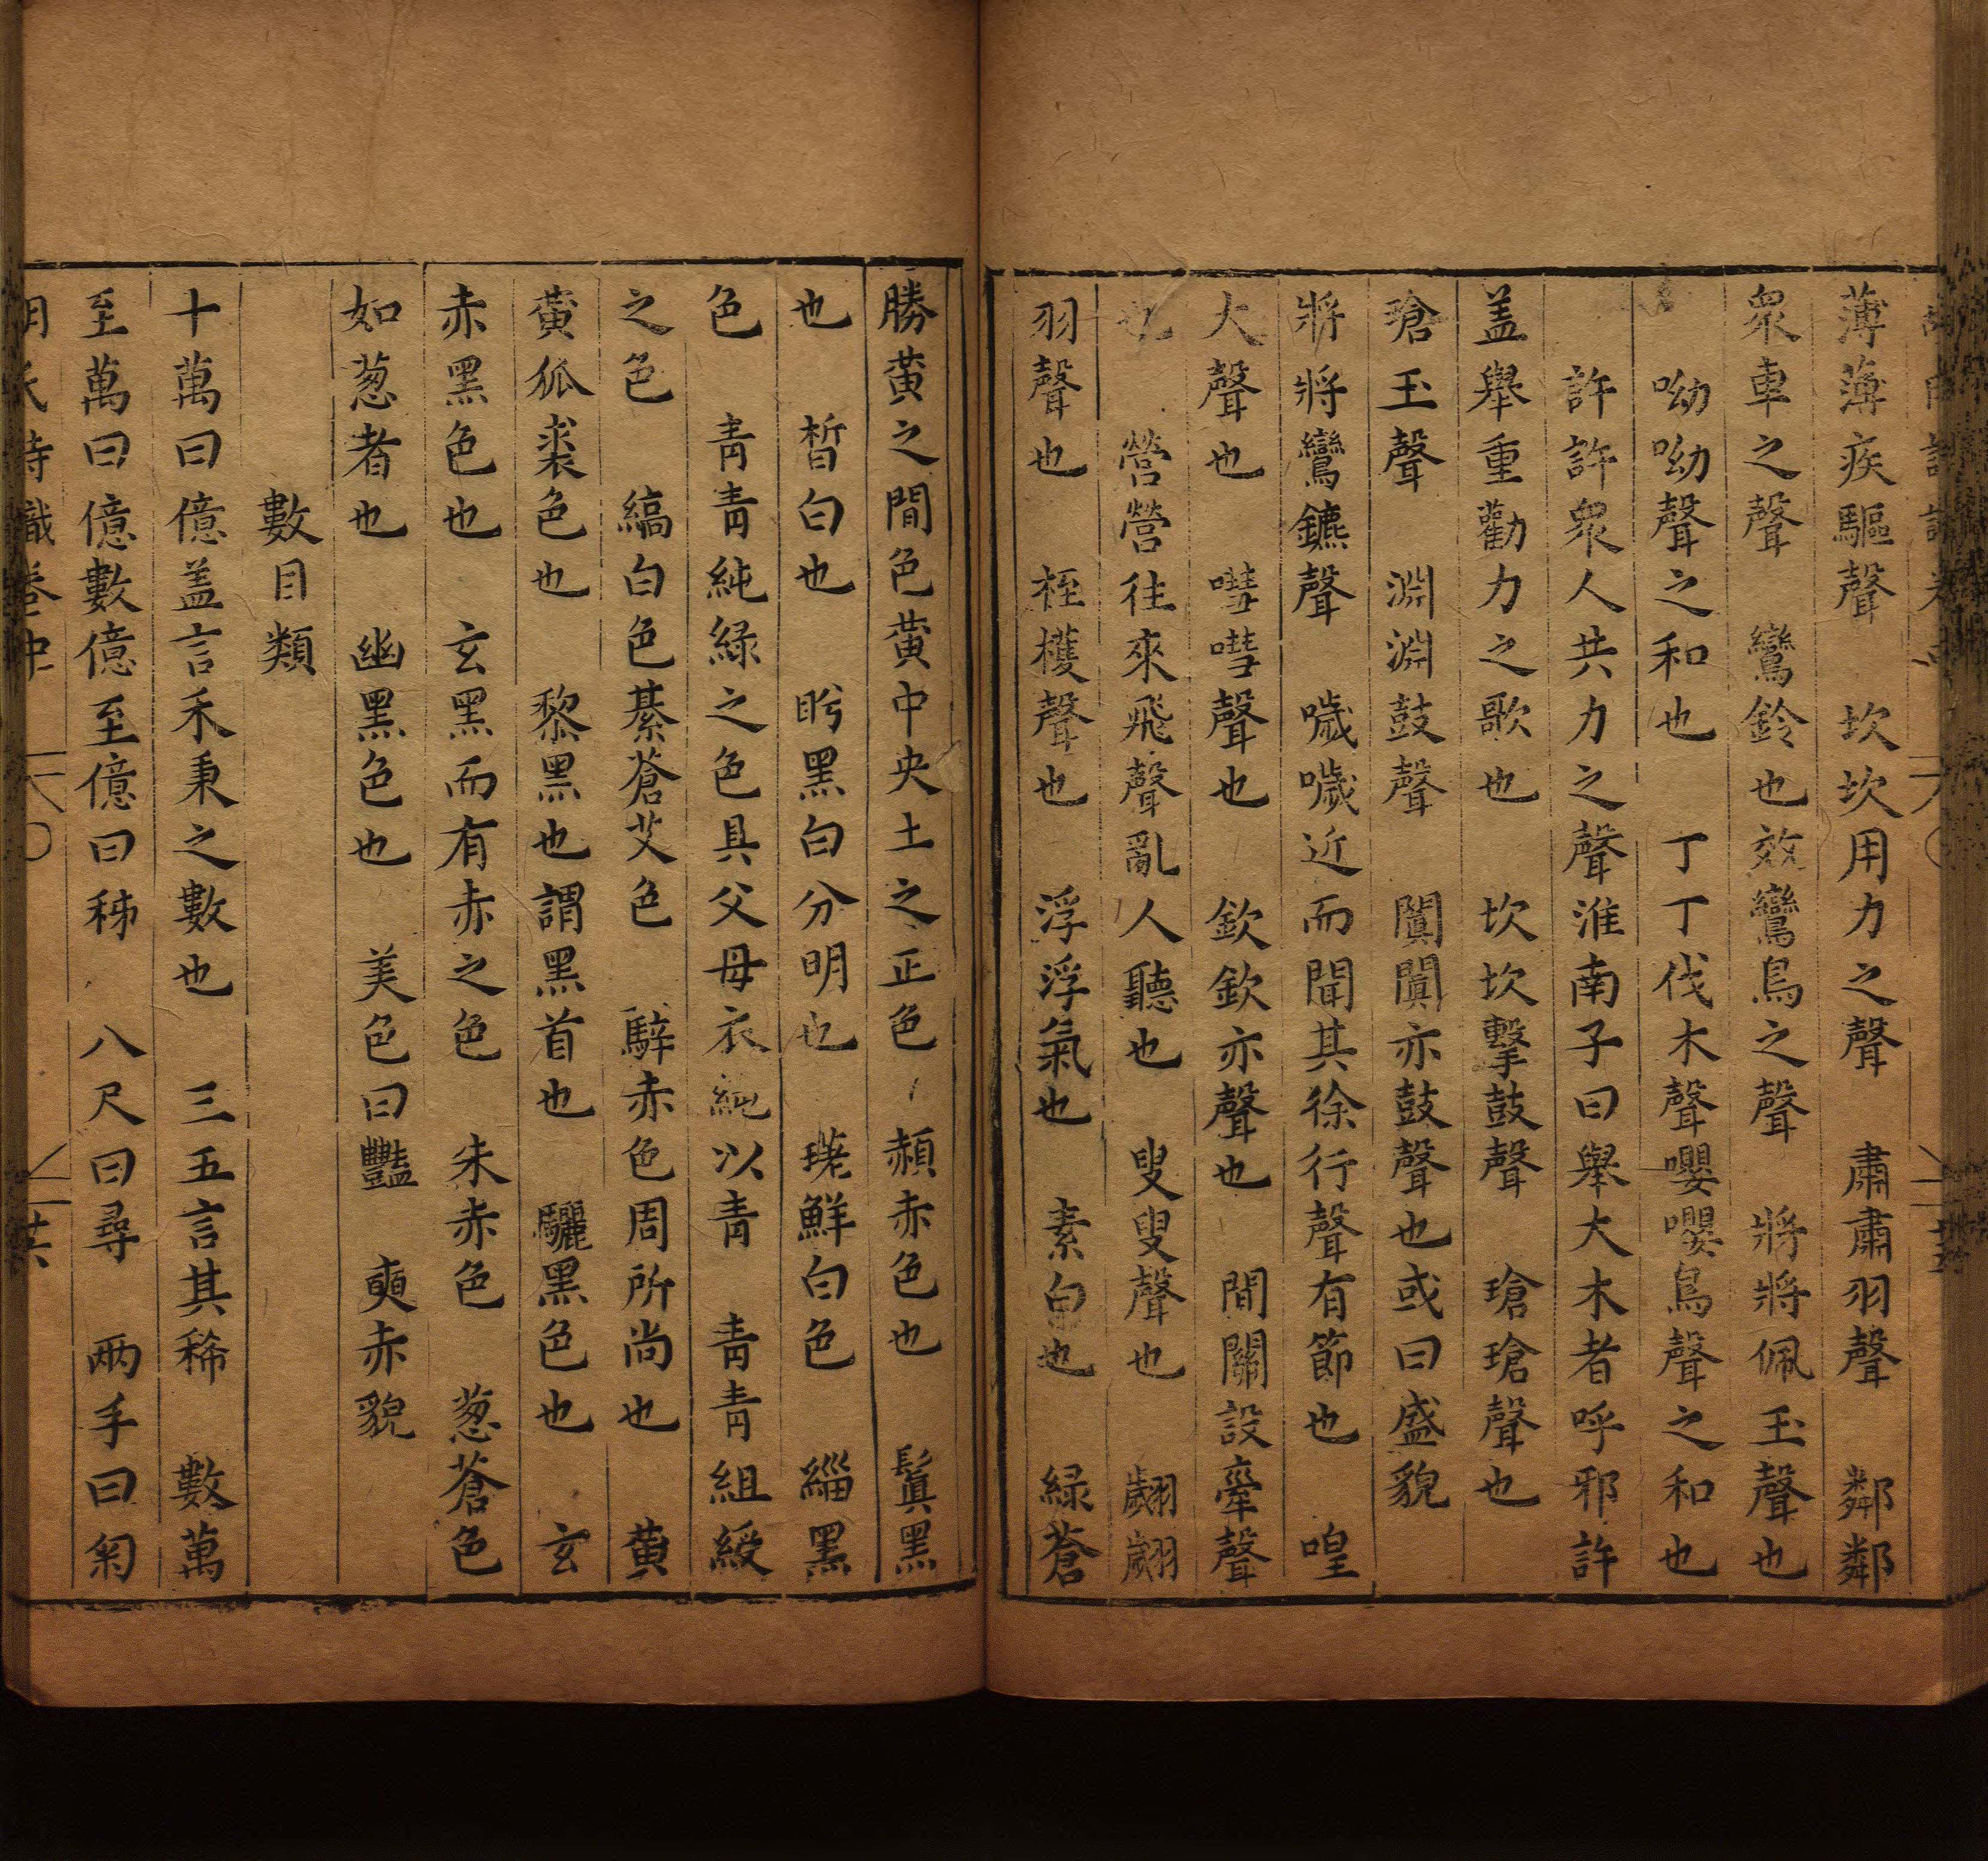 薄薄疾驅聲　坎坎用力之聲　肅肅羽聲　鄰鄰
衆車之聲　鸞鈴也效鸞鳥之聲　將將佩玉聲也
呦呦聲之和也　丁丁伐木聲嚶嚶鳥聲之和也
許許衆人共力之聲淮南子曰舉大木者呼邪許
盖舉重勸力之歌也　坎坎擊鼓聲　瑲瑲聲也
瑲玉聲　淵淵鼓聲　闐闐亦鼓聲也或曰盛貌
將將鸞鑣聲　噦噦近而聞其徐行聲有節也　喤
大聲也　嘒嘒聲也　欽欽亦聲也　間關設舝聲
也　營營往來飛聲亂人聽也　叟叟聲也　翽翽
羽聲也　桎穫聲也　浮浮氣也　素白也　緑蒼
勝黄之間色黄中央土之正色　赬赤色也　鬒黑
也　晳白也　盻黑白分明也　瑳鮮白色　緇黑
色　青青純緑之色具父母衣純以青　青青組綬
之色　縞白色綦蒼艾色　騂赤色周所尚也　黄
黄狐裘色也　黎黑也謂黑首也　驪黑色也　玄
赤黑色也　玄黑而有赤之色　朱赤色　葱蒼色
如葱者也　幽黑色也　美色曰豔　奭赤貌
數目類
十萬曰億盖言禾秉之數也　三五言其稀　數萬
至萬曰億數億至億曰秭　八尺曰尋　兩手曰匊
詩識卷中　六